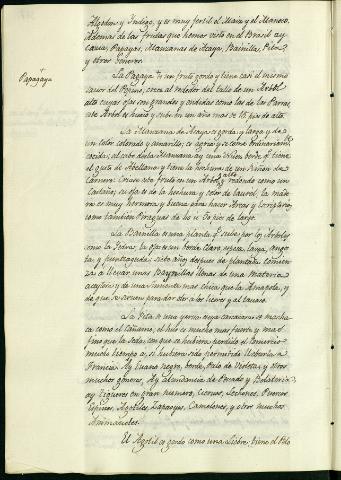 Algodon y Yndigo, y es muy fertil el Maiz y el Manioco.
Ademas de las frutas que hemos visto en el Brasil ay
Papayas, Manzanas de Acaya, Bainillas, Pita
y otros generos.
Papagaya
La Pagaya es un fruto gordo y tiene casi el mismo
savor del Pepino, crece al rededor del tallo de un Arbol
alto cuyas ojas son grandes y ondeadas como las de las Parras,
este Arbol es hueco y sube en un año mas de 15. pies de alto.
La Manzana de Acaya es gorda, y larga y de
un color colorado y amarillo; es agria y se come ordinariamente
cocida; al cabo de la Manzana ay una verde, q.e tiene
el gusto de Abellana y tiene la hechura de un Riñon de
Carnero. Criase esta fruta en un Arbol redondo como un
Castaño; su oja es de la hechura y color de laurel, la made
ra es muy hermosa y buena para hacer Arcas y
como tambien Piraguas de 40 a 50 pies de largo.
La Bainilla es una planta q.e sube por los Arboles
como la Yedra; la oja es un verde claro, espesa, larga, angos
ta, y puntiaguda: siete años despues de plantada comien
za a llevar unas Baynillas llenas de una materia
aceytosa y de una simiente mas chica que la Amapola, y
de que se sirven para dar olor a los licores y al tabaco.
La Pita es una yerva cuya se macha
ca como el Cañamo, el hilo es mucho mas fuerte y mas
fino que la seda, con que se hubiera perdido el Comercio
mucho tiempo a, si hubiera sido permitido llebarla a
Francia. Ay Evano negro, verde, Palo de Violeta, y otros
muchos generos, Ay abundancia de Pescado y Bolateria,
ay Tigueres en gran numero, Ciervos, Lechones, Puercos
Espines, Agutiles, Sapajous, Camaleones, y otros muchos
Animales.
El Agutil es gordo como una Liebre; tiene el Pelo